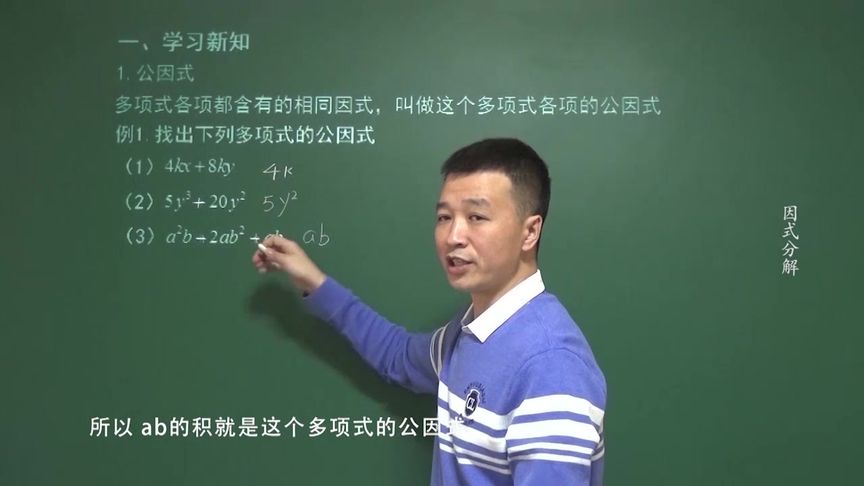 一、学习新知
1.公因式
多项式各项都含有的相同因式，叫做这个多项式各项的公因式
例1.找出下列多项式的公因式
（1）4kx+8ky 4k
（2）5y³+20y² 5y²
（3）a²b-2ab²+ab ab
因式分解
所以 ab的积就是这个多项式的公因式